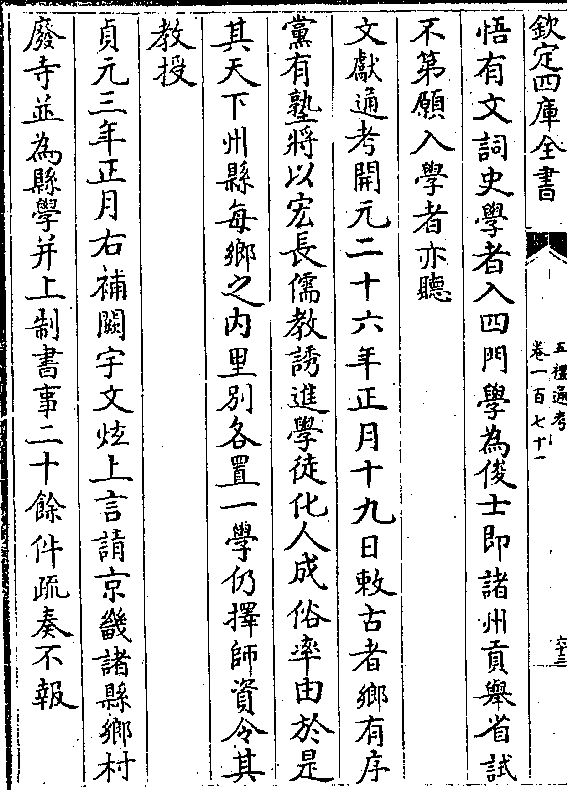 欽定四庫全書
五禮通考
卷一百七十一
悟有文詞史學者入四門學為俊士即諸州貢舉省試
不第願入學者亦聽
文獻通考開元二十六年正月十九日敕古者鄉有序
黨有塾將以宏長儒教誘進學徒化人成俗率由於是
其天下州縣每鄉之内里別各置一學仍擇師資令其
教授
貞元三年正月右補闕宇文炫上言請京畿諸縣鄉村
廢寺並為縣學并上制書事二十餘件疏奏不報